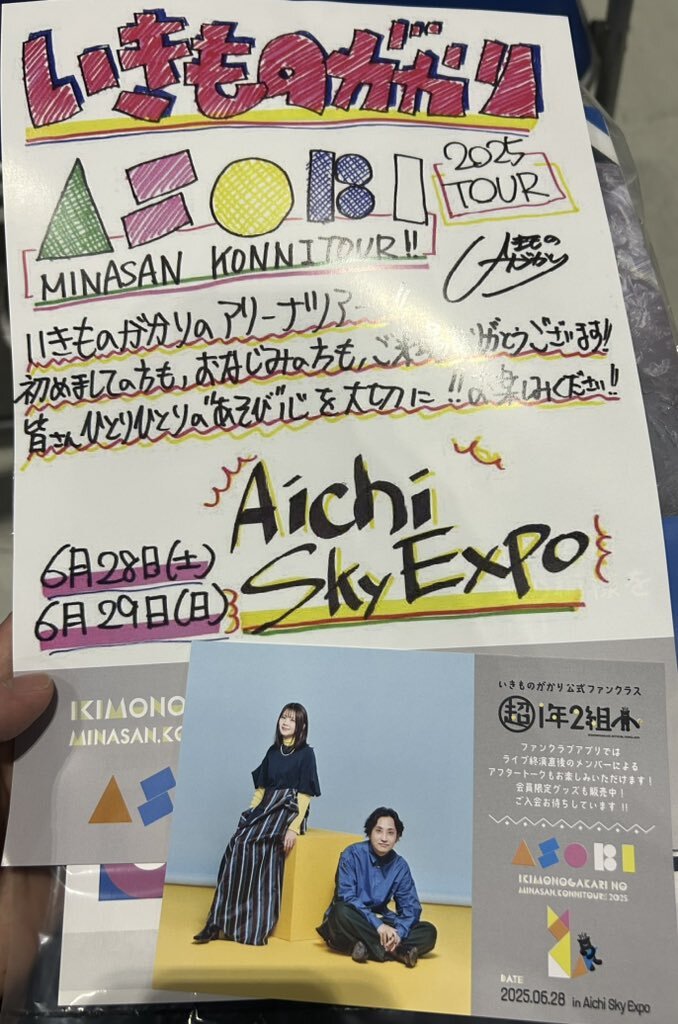 いきものがかり
ASOBI
2025
TOUR
MINASAN KONNITOUR!!
いきものがかり
いきものがかりのアリーナツアー
初めましての方も、おなじみの方も、ご来 がとうございます!!
皆さんひとりひとりの"あそび"心を大切に!!お楽しみください!!
Aichi
Sky Expo
6月28日(土)
6月29日(日)
IKIMONO
MINASAN,KO
AS
いきものがかり公式ファンクラス
超1年2組
ファンクラブアプリでは
ライブ終演直後のメンバーによる
アフタートークもお楽しみいただけます!
会員限定グッズも販売中!
ご入会お待ちしています!!
ASOBI
IKIMONOGAKARI NO
MINASAN,KONNITOUR!! 2025
DATE
2025.06.28 in Aichi Sky Expo